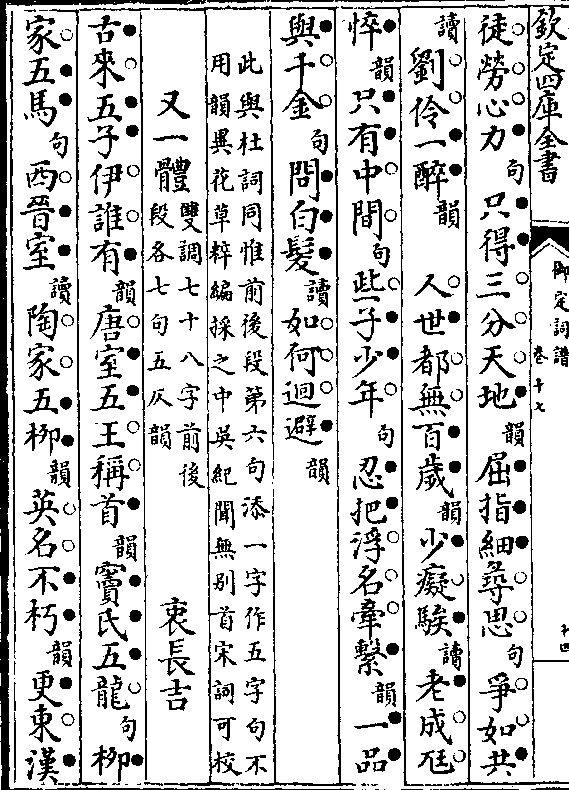 欽定四庫全書
御定詞譜
卷十七
徒勞心力句只得三分天地韻屈指細尋思句爭如共
讀劉伶一醉韻 人世都無百歲韻少癡騃讀老成尫
悴韻只有中間句些子少年句忍把浮名牽繫韻一品
與千金句問白髮讀如何迴避韻
此與杜詞同惟前後段第六句添一字作五字句不
用韻異花草粹編採之中吳紀聞無別首宋詞可校
又一體
雙調七十八字前後
段各七句五仄韻
衷長吉
古來五子伊誰有韻唐室五王稱首韻竇氏五龍句柳
家五馬句西晉室讀陶家五柳韻英名不朽韻更東漢